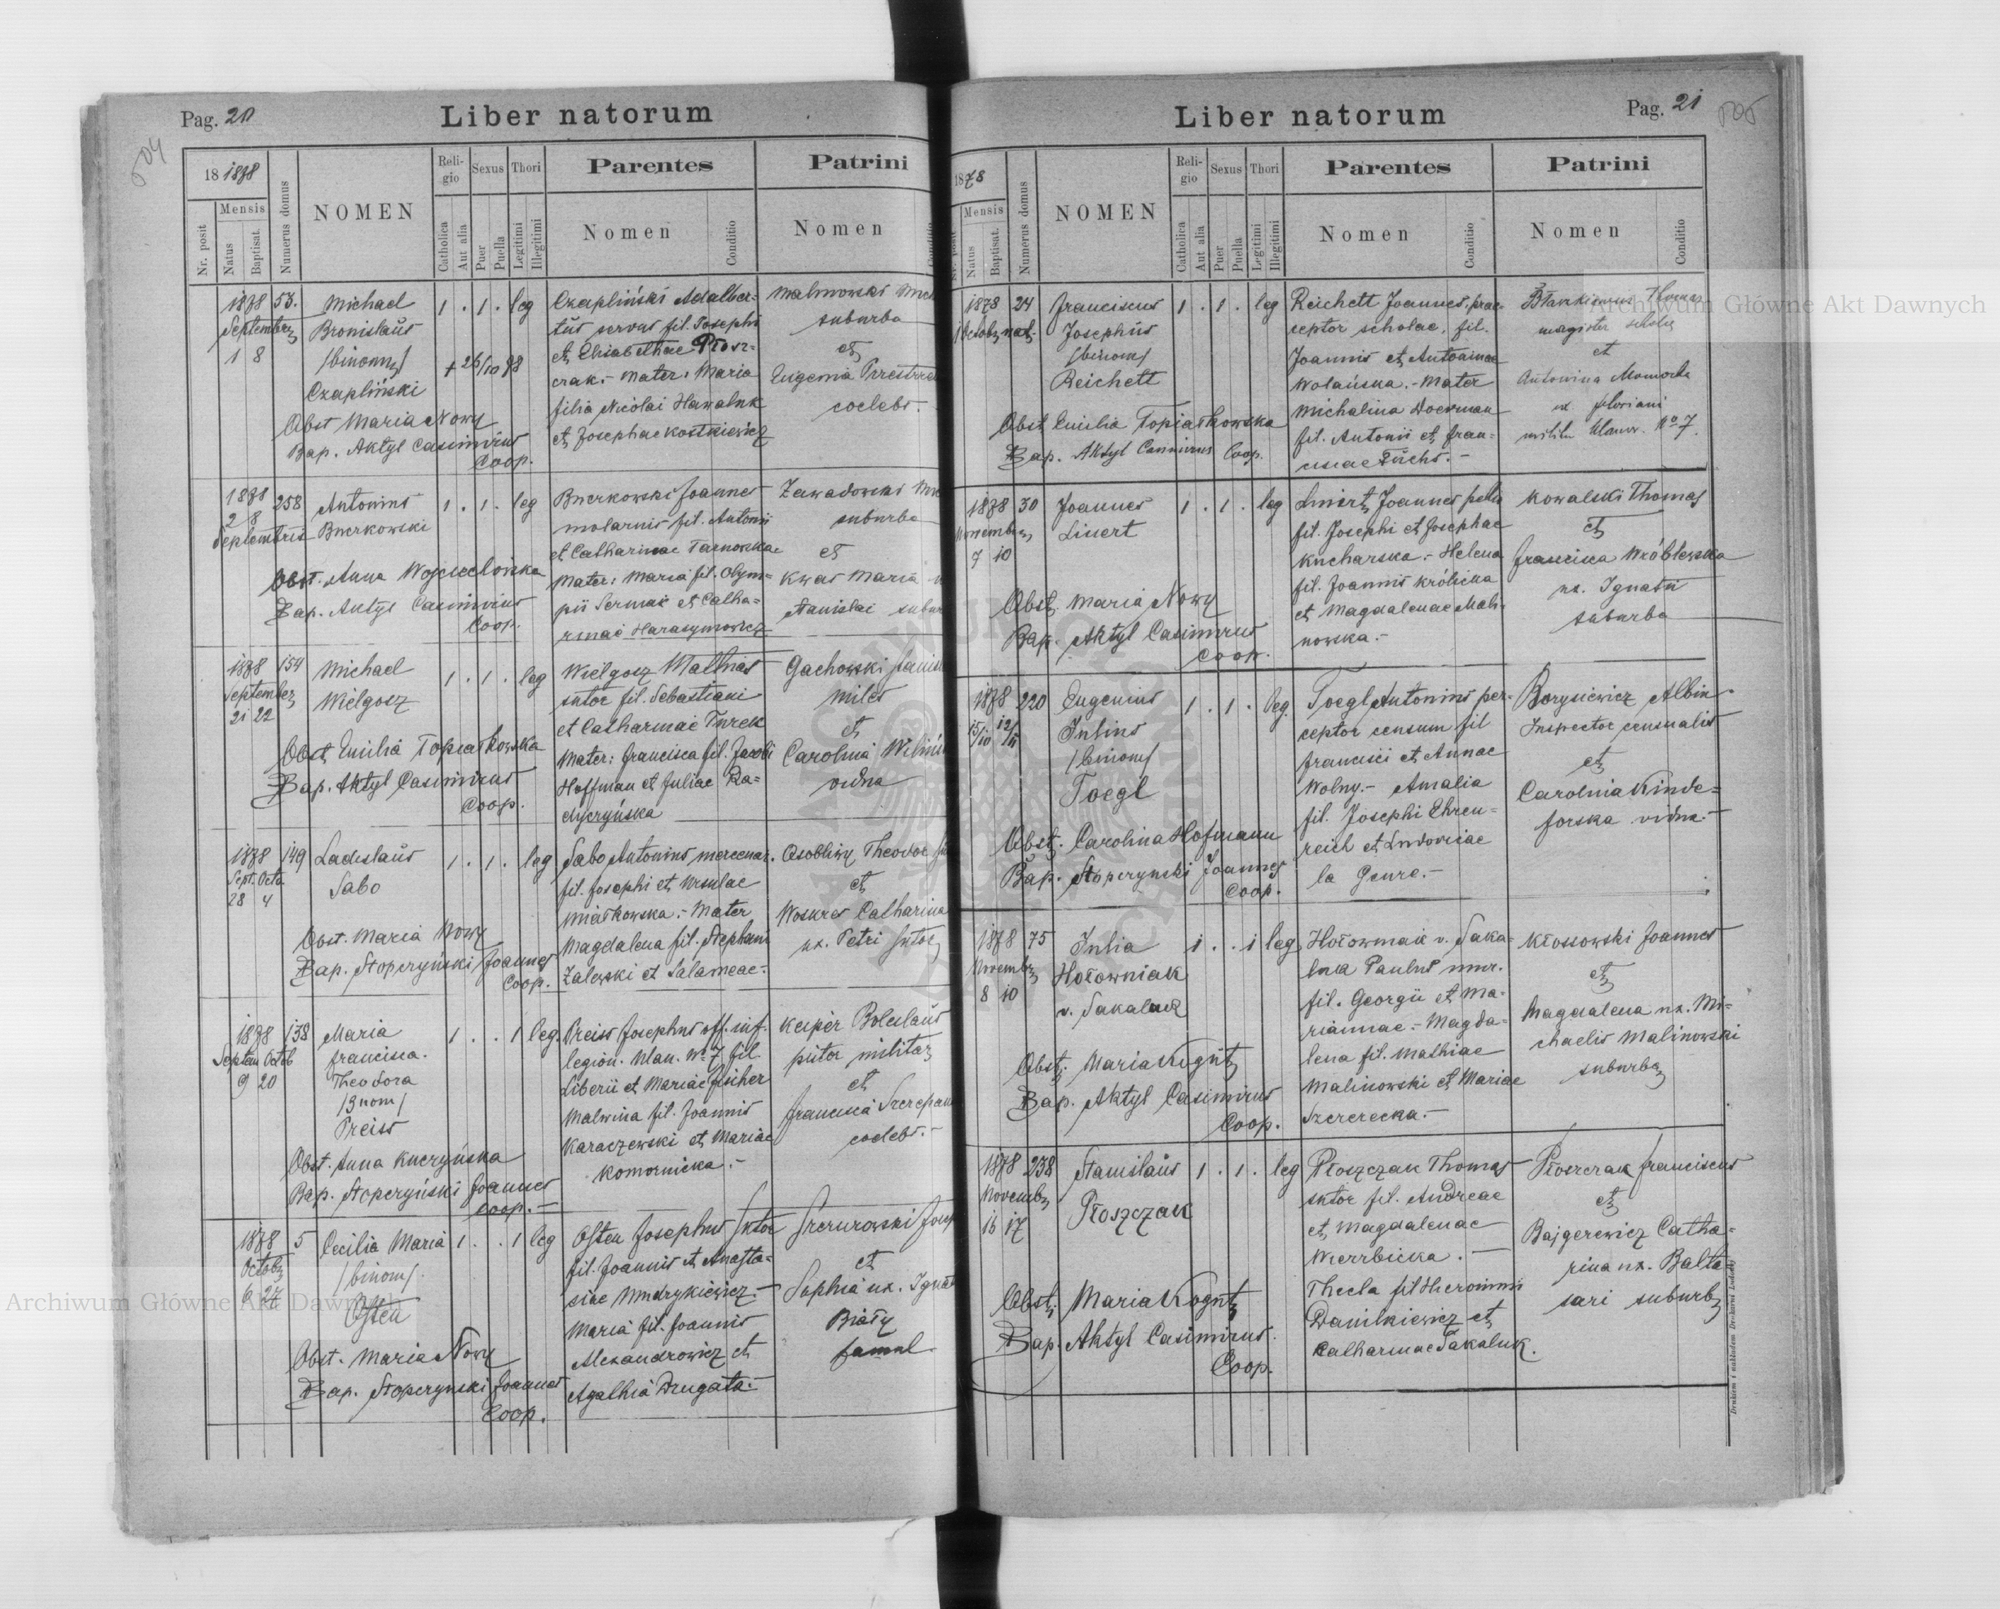 Pag. 20
Liber natorum
504
18 1878
Mensis
Nr. posit
Natus
Baptisat.
Numerus domus
NOMEN
Religio
Catholica
Aut alia
Sexus
Puer
Puella
Thori
Legitimi
Illegitimi
Parentes
Nomen
Conditio
Patrini
Nomen
1878 53.
Septembr
1 8
Michael
Bronislaus
/binom/
Czapliński
1 . 1 . leg
+ 26/10 98
Obst Maria Nowy
Bap. Aktyl Casimirus
Coop.
Czapliński Adalber-
tus servus fil. Josephi
et Elisabethae Płosz-
czak.- Mater: Maria
filia Nicolai Hawaluk
et Josephae Kostkiewicz
Malinowski
suburba
et
Eugenia
coelebs.-
1878 258
2 8
Septembris
Antonius
Bucrkowski
1 . 1 . leg
Obst. Anna
Bap. Aktyl Casimirus
Coop.
Joannes
molarius fil. Antonii
et Catharinae Tarnowska
Mater: Maria fil. Olym-
pii et Catha-
rinae Harasymowicz
Zawadowski
suburba
et
Kwas Maria
Stanislai
1878 154
Septembr
21 22
Michael
Wielgosz
1 . 1 . leg
Obst Emilia Topiałkowska
Bap. Aktyl Casimirus
Coop.
Wielgosz Mathias
sutor fil. Sebastiani
et Catharinae Turek
Mater: Francisca fil. Jacobi
Hoffman et Juliae Ra-
dyczyńska
Gachowski
miles
et
Carolina
vidna
1878 149
Sept. Octo
28 4
Ladislaus
Sabo
1 . 1 . leg
Obst. Maria Nowy
Bap. Stopczyński Joannes
Coop.
Sabo Antonius mercenar.
fil. Josephi et Ursulae
Miałkowska.- Mater
Magdalena fil. Stephani
Zalewski et Salameae.-
Osobliwy Theodor
et
Woskres Catharina
ux. Petri sutor
1878 138
Septem Octob
9 20
Maria
Francisca.
Theodora
/3nom/
Preiss
1 . . 1 leg
Obst. Anna Kuczyńska
Bap. Stopczyński Joannes
Coop.-
Preiss Josephus off. inf.
legion. Ulan. No 7 fil.
Liberii et Mariae Fischer
Malwina fil. Joannis
Karaczewski et Mariae
Komornicka.-
Kasper Boleslaus
pistor militar
et
Francisca
coelebs.-
1878 5
Octob
6 27
Cecilia Maria
/binom/.
Osten
1 . . 1 leg
Obst. Maria Nowy
Bap. Stopczynski Joannes
Coop.
Osten Josephus sutor
fil. Joannis et Anasta-
siae Mudrykiewicz.-
Maria fil. Joannis
Alexandrowicz et
Agathia Drugata.-
et
Sophia ux.
Biały
famul.
Pag. 21
505
Liber natorum
1878
Mensis
Natus
Baptisat.
Numerus domus
NOMEN
Religio
Catholica
Aut alia
Sexus
Puer
Puella
Thori
Legitimi
Illegitimi
Parentes
Nomen
Conditio
Patrini
Nomen
Conditio
1878 24
Franciscus
Josephus
/binom/
Reichett
1 . 1 . leg
Obst Emilia Topiałkowska
Bap. Aktyl Casimirus Coop.
Reichett Joannes, prae-
ceptor scholae, fil.
Joannis et Antoninae
Wolańska.- Mater
Michalina
fil. Antonii et Fran-
ciscae Fuchs.-
Thomas
magister scholae
et
Antonina
ux. Floriani
No 7.
1878 30
Novembr
7 10
Joannes
Linert
1 . 1 . leg
Obst. Maria Nowy
Bap. Aktyl Casimirus
Coop.
Linert Joannes
fil. Josephi et Josephae
Kucharska.- Helena
fil. Joannis Królicka
et Magdalenae Mali-
nowska.-
Kowalski Thomas
et
Francisca Wróblewska
ux. Ignatii
suburba
1878 220
15/10 12/11
Eugenius
Julius
/binom/
Toegl
1 . 1 . leg.
Obst. Carolina Hofmann
Bap. Stopczynski Joannes
Coop.
Toegl Antonius per-
ceptor censuum fil
Francisci et Annae
Wolny.- Amalia
fil. Josephi Ehren-
reich et Ludovicae
la Genre.-
Borysiewicz Albin
Inspector censualis
et
Carolina Kinde-
forska vidna.-
1878 75
Novembr
8 10
Julia
Hołowniak
v. Sakaluk
1 . . 1 leg
Obst. Maria Kogut
Bap. Aktyl Casimirus
Coop.
Hołowniak v. Saka-
luk Paulus mur.
fil. Georgii et Ma-
riannae.- Magda-
lena fil. Mathiae
Malinowski et Mariae
Szczerecka.-
Kłossowski Joannes
et
Magdalena ux. Mi-
chaelis Malinowski
suburb
1878 238
Novembr
16 17
Stanislaus
Płoszczak
1 . 1 . leg
Obst. Maria Kogut
Bap. Aktyl Casimirus.
Coop.
Płoszczak Thomas
sutor fil. Andreae
et Magdalenae
Wierzbicka.-
Thecla fil Hieronimi
Danilkiewicz et
Catharinae Sakaluk.
Płoszczak Franciscus
et
Bajgerewicz Catha-
rina ux. Balta-
sari suburb
Archiwum Główne Akt Dawnych
Archiwum Główne Akt Dawnych